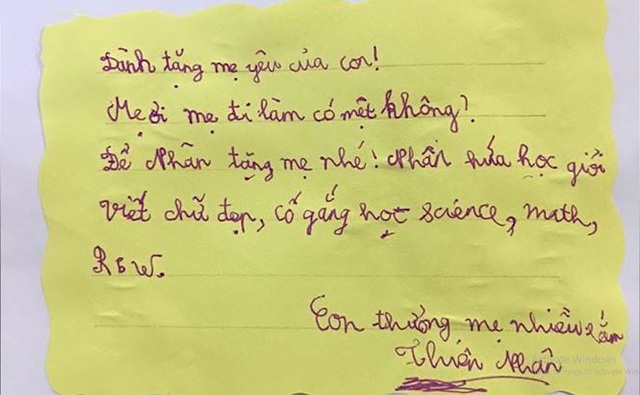 Dành tặng mẹ yêu của con!
Mẹ ơi mẹ đi làm có mệt không?
Để Nhân tặng mẹ nhé! Nhân hứa học giỏi
viết chữ đẹp, cố gắng học science, math,
R&W.
Con thương mẹ nhiều lắm
Thiện Nhân